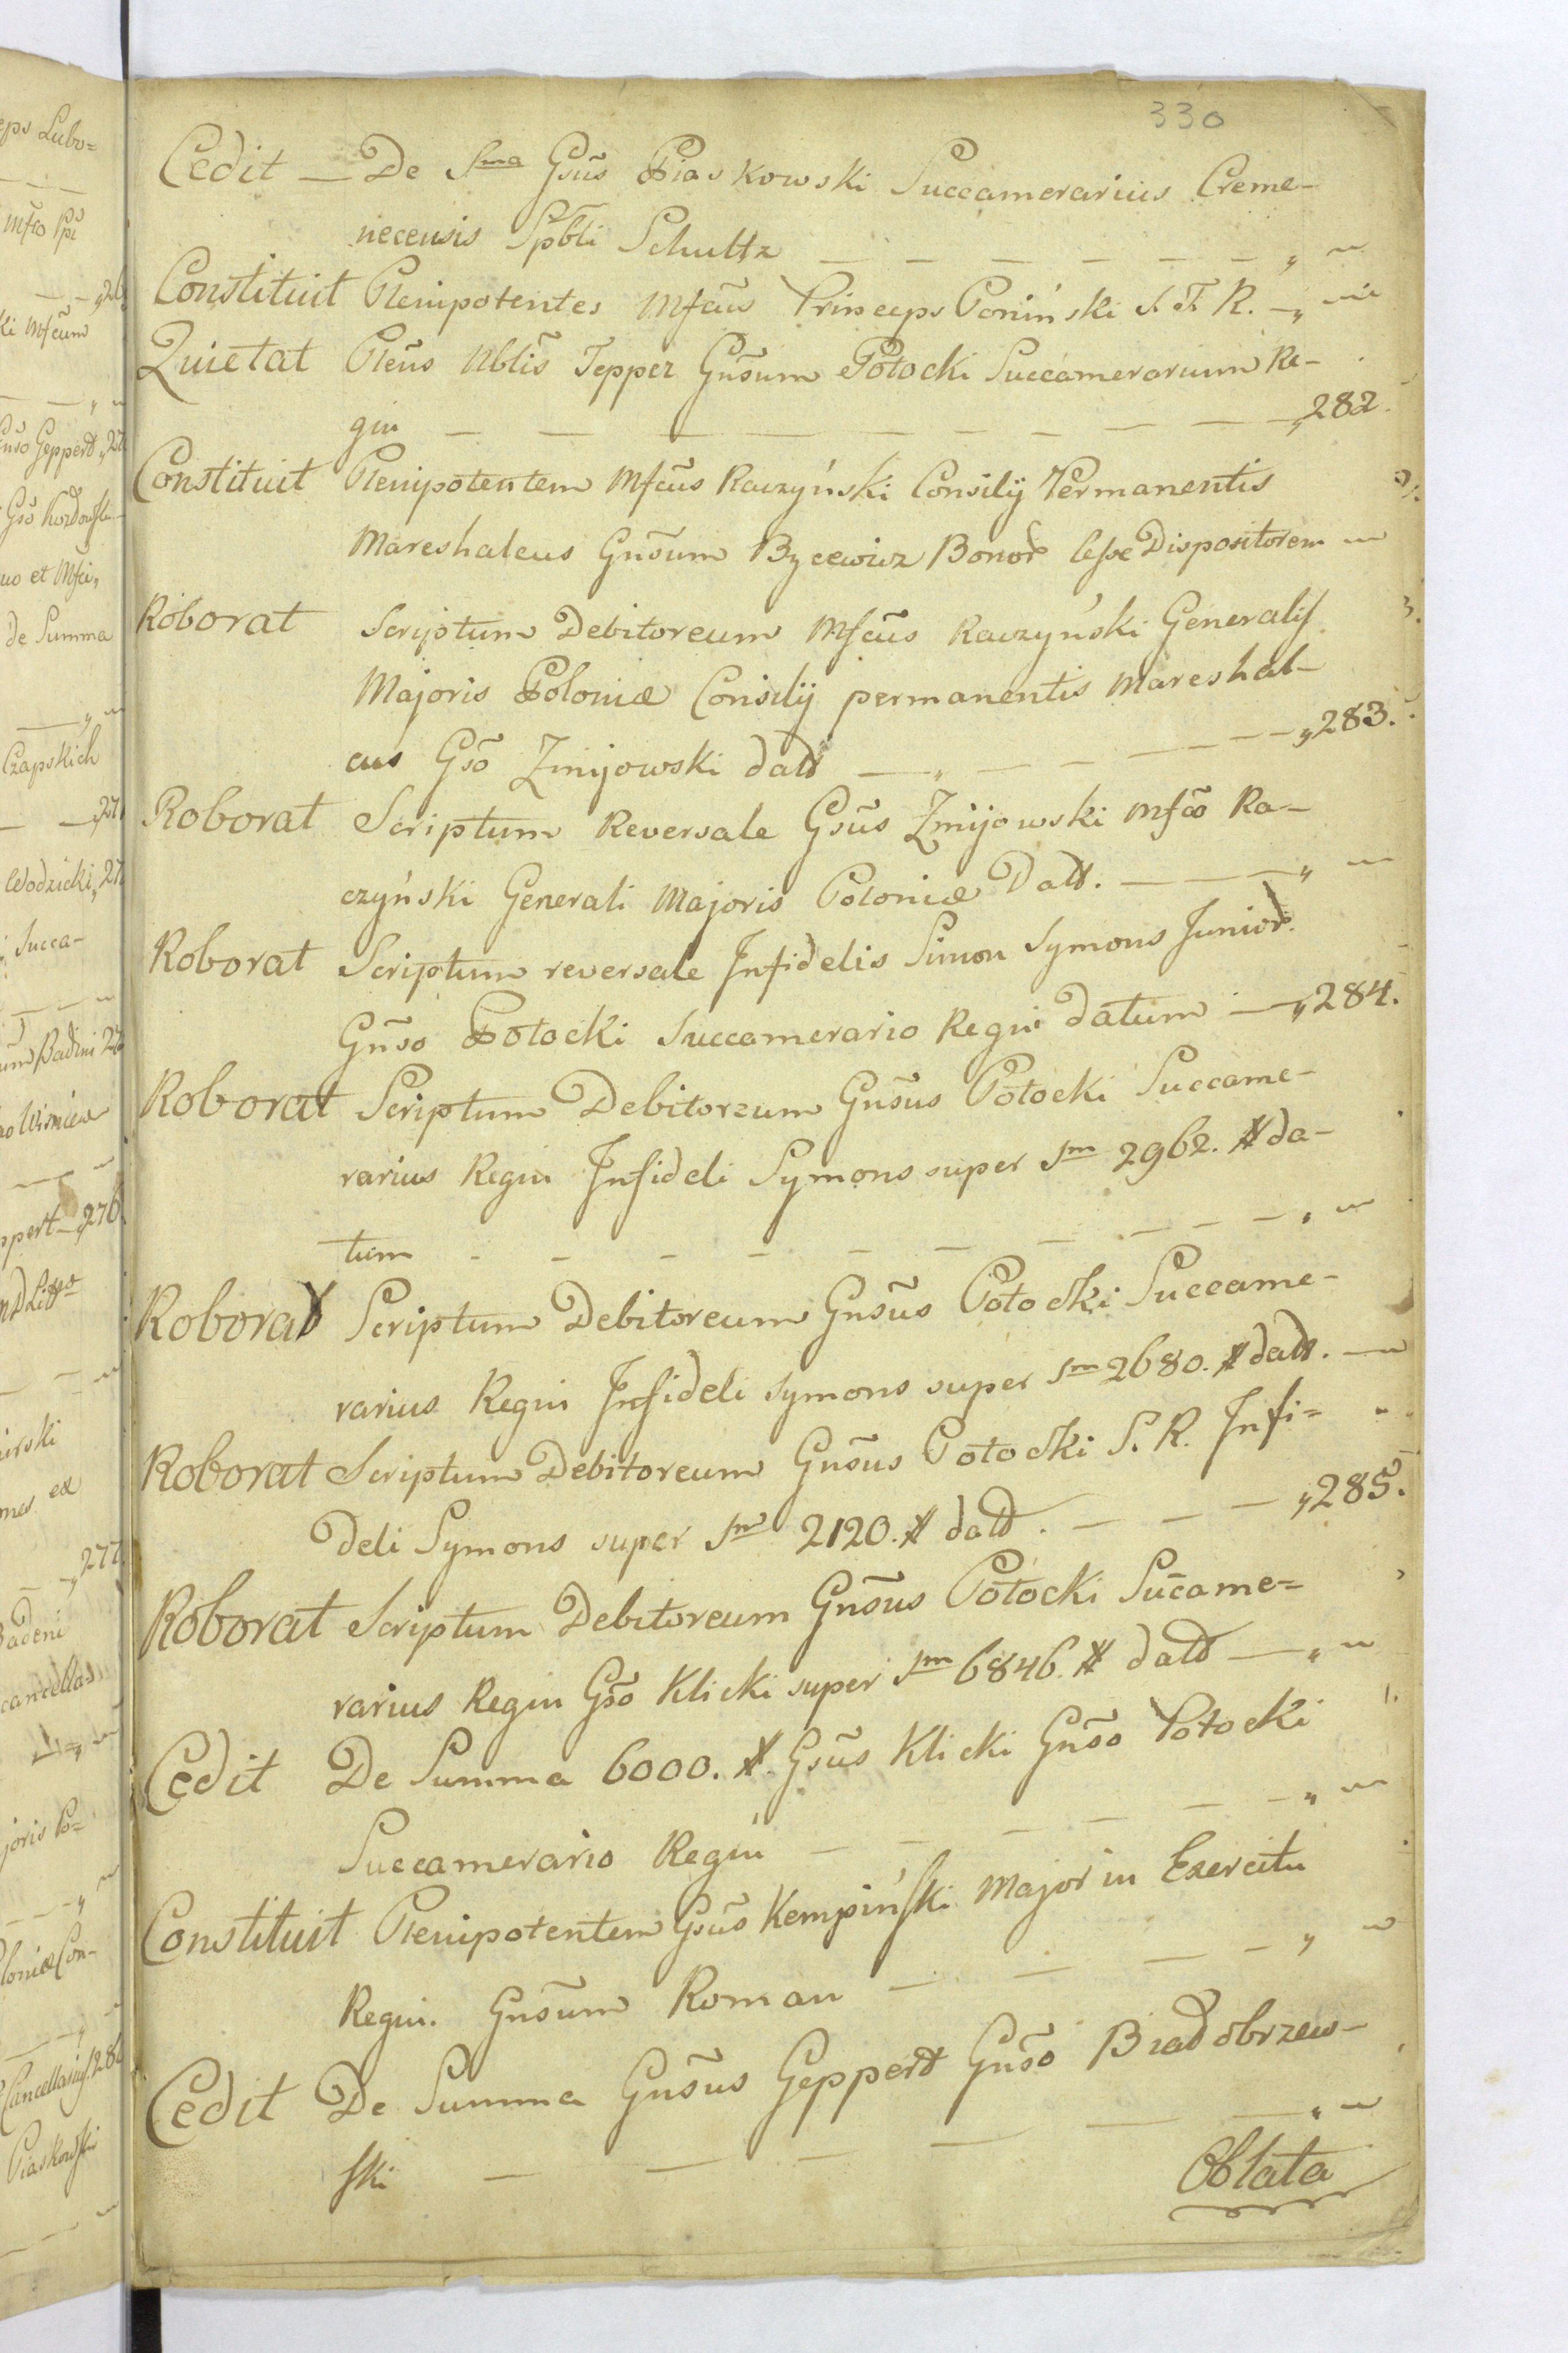 330
Cedit — De Sma Gsus Piaskowski Succamerarius Creme-
necensis Spbli Schultz — — — — — — „ —
Constituit Plenipotentes Mfcus Princeps Poniński S. T. R. — „ —
Quietat Plens Nblis Tepper Gnsum Potocki Succamerarium Re-
gni — — — — — — — — — „ 282.
Constituit Plenipotentem Mfcus Raczyński Consilij Permanentis
Mareshalcus Gnsum Bycewicz Bonor Dispositorem —
Roborat Scriptum Debitoreum Mfcus Raczyński Generalis
Majoris Poloniæ Consilij permanentis Mareshal-
cus Gso Zmijowski datt — „ — — — — — — „ 283.
Roborat Scriptum Reversale Gsus Zmijowski Mfco Ra-
czyński Generali Majoris Poloniæ Datt. — — — „ —
Roborat Scriptum reversale Infidelis Simon Symons Junior.
Gnso Potocki Succamerario Regni datum — „ 284.
Roborat Scriptum Debitoreum Gnsus Potocki Succame-
rarius Regni Infideli Symons super Sm 2962. # da-
tum - - - - - - - - - - „ —
Roborat Scriptum Debitoreum Gnsus Potocki Succame-
rarius Regni Infideli Symons super Sm 2680. # datt. —
Roborat Scriptum Debitoreum Gnsus Potocki S. R. Infi=
deli Symons super Sm 2120. # datt. — — — „ 285.
Roborat Scriptum Debitoreum Gnsus Potocki Sucame=
rarius Regni Gso Klicki super Sm 6846. # datt — „ —
Cedit De Summa 6000. #. Gsus Klicki Gnso Potocki
Succamerario Regni — — — — — „ —
Constituit Plenipotentem Gsus Kempiński Major in Exercitu
Regni. Gnsum Roman — — — — „ —
Cedit De Summa Gnsus Geppert Gnso Biadobrzew-
ski — — — — — — „ —
Oblata